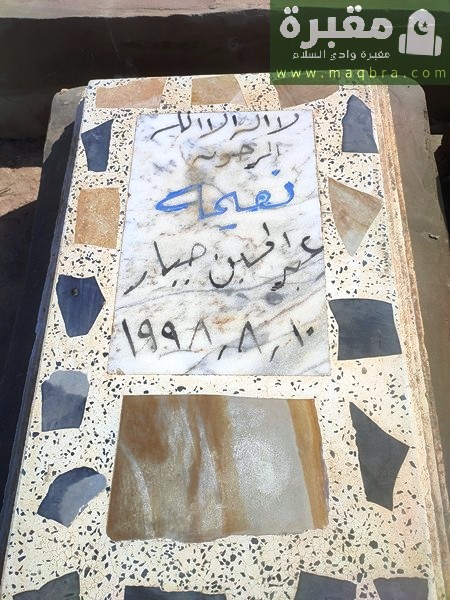 مقبرة
مقبرة وادي السلام
www.maqbra.com
لا اله الا الله
المرحومه
نعيمه
عبد الحسين جبار
١٩٩٨.٨.١٠